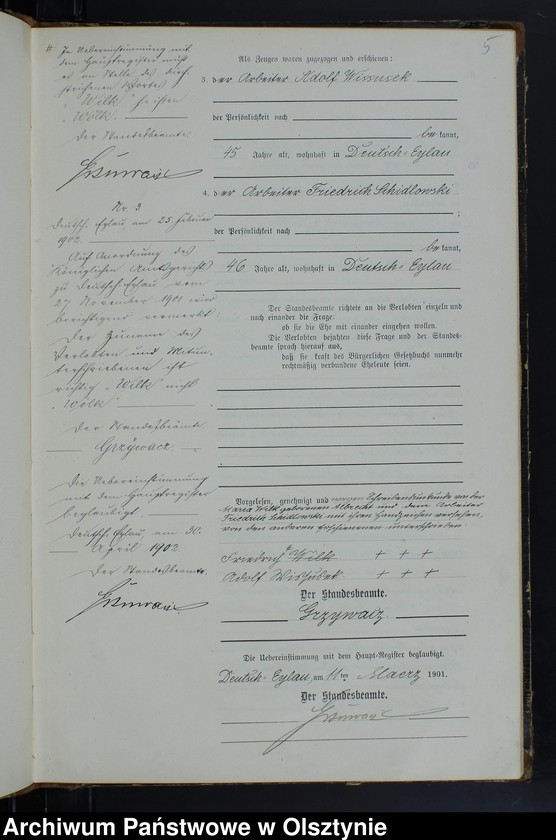 5
# In Uebereinstimmung mit
dem Hauptregister muß
es an Stelle des durch-
strichenen Wortes
"Wilk" heißen
"Wölk".
Der Standesbeamte.
Nr. 3
Deutsch-Eylau, am 25. Februar
1902.
Auf Anordnung des
Königlichen Amtsgerichts
zu Deutsch-Eylau vom
27 November 1901 wird
berichtigend vermerkt:
Der Zuname des
Verlobten und Mitun-
terschriebenen ist
richtig "Wilk" nicht
"Wölk"
Der Standesbeamte.
Grzywacz.
Die Uebereinstimmung
mit dem Hauptregister
beglaubigt.
Deutsch-Eylau, am 30.
April 1902
Der Standesbeamte.
Als Zeugen waren zugezogen und erschienen:
3. der Arbeiter Adolf Wissusek
der Persönlichkeit nach
bekannt,
45 Jahre alt, wohnhaft in Deutsch-Eylau
4. der Arbeiter Friedrich Schidlowski
;
der Persönlichkeit nach
bekannt,
46 Jahre alt, wohnhaft in Deutsch-Eylau
Der Standesbeamte richtete an die Verlobten einzeln und
nach einander die Frage:
ob sie die Ehe mit einander eingehen wollen.
Die Verlobten bejahten diese Frage und der Standes-
beamte sprach hierauf aus,
daß sie kraft des Bürgerlichen Gesetzbuchs nunmehr
rechtmäßig verbundene Eheleute seien.
Vorgelesen, genehmigt und wegen Schreibensunkunde von der
Maria Wilk geborenen Albrecht und dem Arbeiter
Friedrich Schidlowski mit ihren Handzeichen versehen,
von den anderen Erschienenen unterschrieben
Friedrich # Wilk + + +
Adolf Wishubek + + +
Der Standesbeamte.
Grzywacz
Die Uebereinstimmung mit dem Haupt-Register beglaubigt.
Deutsch-Eylau, am 11ten Maerz 1901.
Der Standesbeamte.
Archiwum Państwowe w Olsztynie